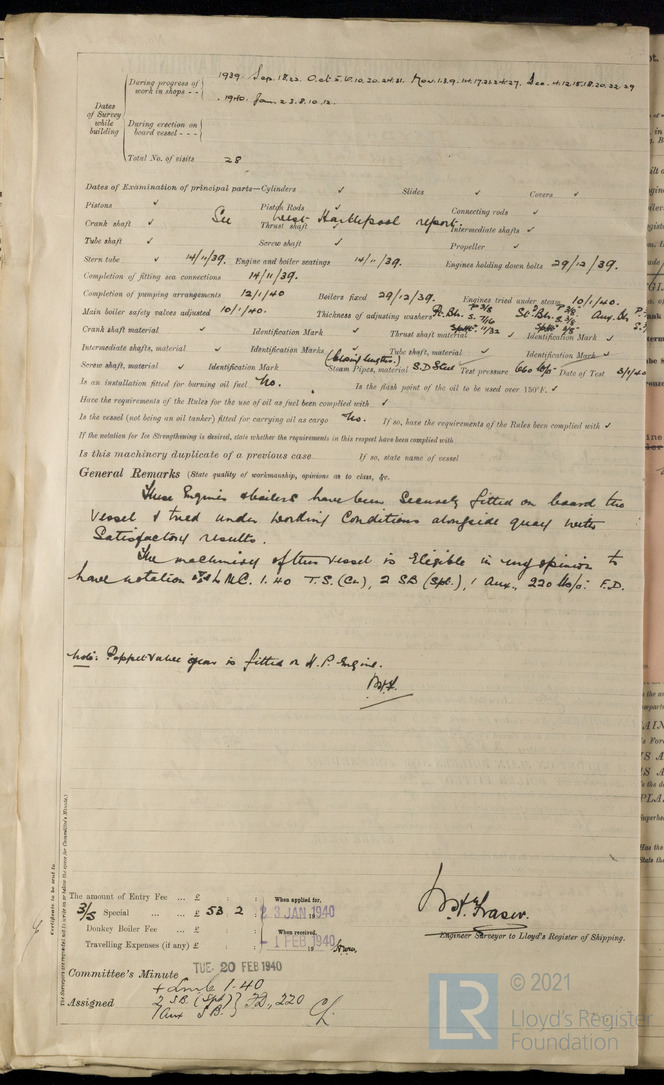 Dates of Survey while building
During progress of work in shops - - 1939. Sep. 18.22. Oct 5. 6. 10. 20. 24. 31. Nov. 1. 3. 9. 14. 17. 22. 24. 27. Dec. 4. 12. 15. 18. 20. 22. 29
1940. Jan. 2 3. 8. 10. 12.
During erection on board vessel - - -
Total No. of visits 28
Dates of Examination of principal parts—Cylinders ✓ Slides ✓ Covers ✓
Pistons ✓ Piston Rods ✓ Connecting rods ✓
See West Hartlepool report.
Crank shaft ✓ Thrust shaft Intermediate shafts ✓
Tube shaft ✓ Screw shaft ✓ Propeller ✓
Stern tube ✓ 14/11/39. Engine and boiler seatings 14/11/39. Engines holding down bolts 29/12/39.
Completion of fitting sea connections 14/11/39.
Completion of pumping arrangements 12/1/40 Boilers fixed 29/12/39. Engines tried under steam 10/1/40.
Main boiler safety valves adjusted 10/1/40. Thickness of adjusting washers Pt. Blr. P 3/8 S. 7/16 Spht. 11/32 St. Blr. P 3/8 S. 3/8 Spht 3/8 Aux. Blr P. S.
Crank shaft material ✓ Identification Mark ✓ Thrust shaft material ✓ Identification Mark ✓
Intermediate shafts, material ✓ Identification Marks ✓ Tube shaft, material ✓ Identification Mark ✓
Screw shaft, material ✓ Identification Mark Steam Pipes, material S.D Steel Test pressure 660 lb/o" Date of Test 3/1/40
Is an installation fitted for burning oil fuel No. Is the flash point of the oil to be used over 150°F. ✓
Have the requirements of the Rules for the use of oil as fuel been complied with ✓
Is the vessel (not being an oil tanker) fitted for carrying oil as cargo No. If so, have the requirements of the Rules been complied with ✓
If the notation for Ice Strengthening is desired, state whether the requirements in this respect have been complied with
Is this machinery duplicate of a previous case If so, state name of vessel
General Remarks (State quality of workmanship, opinions as to class, &c.
These Engines & boilers have been securely fitted on board this
vessel & tried under working conditions alongside quay with
satisfactory results.
The machinery of this vessel is eligible in my opinion to
have notation LMC. 1.40 T.S. (CL), 2 SB (Spt.), 1 Aux., 220 lb/o" F.D.
Note: Poppet valve gear is fitted on H.P. Engine.
W.H.F.
Certificate to be sent to
(The Surveyors are requested not to write on or below the space for Committee's Minute.)
The amount of Entry Fee ... £ : : When applied for,
3/5 Special ... ... £ 53 . 2 : 23 JAN 1940
Donkey Boiler Fee ... £ : : When received,
Travelling Expenses (if any) £ : : 1 FEB 1940
W.H. Fraser.
Engineer Surveyor to Lloyd's Register of Shipping.
Committee's Minute TUE. 20 FEB 1940
Assigned + Lmc 1.40
2 S.B. (Spt) 1 Aux S.B. } FD., 220
LR
© 2021
Lloyd's Register
Foundation